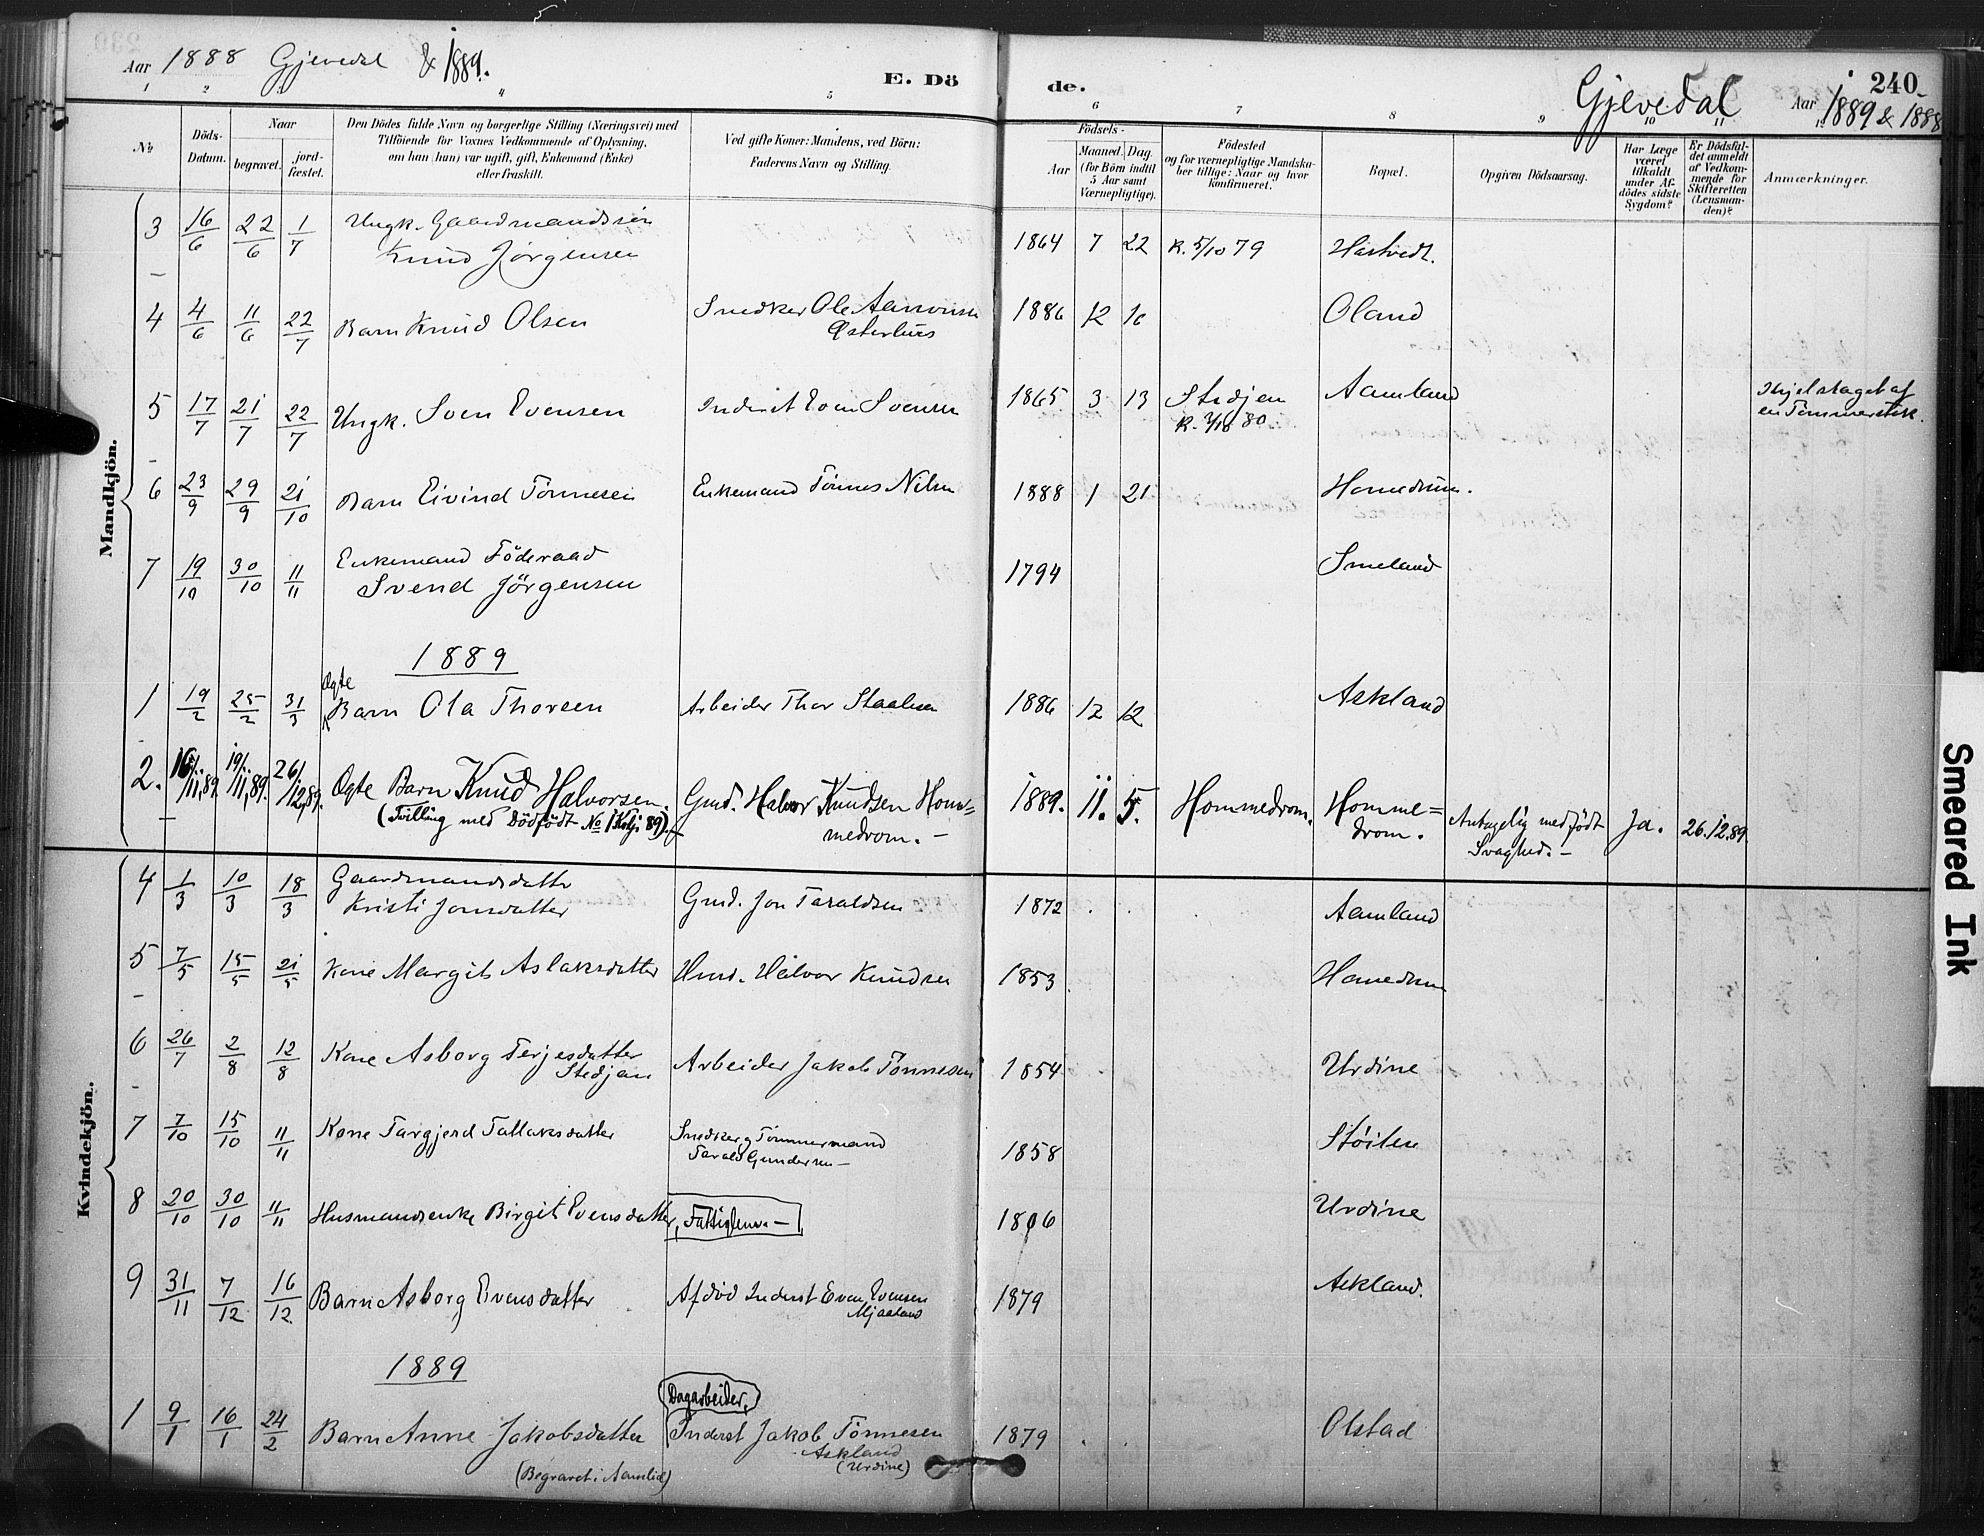 Aar 1888 Gjevedal & 1889.
E. Dö
de.
Gjevedal
Aar 1889 & 1888
240
1 2 4 5 6 7 8 9 10 11
№
Döds-
Datum.
Naar
begravet.
jord-
fæstet.
Den Dödes fulde Navn og borgerlige Stilling (Næringsvei) med
Tilföiende for Voxnes Vedkommende af Oplysning,
om han (hun) var ugift, gift, Enkemand (Enke)
eller fraskilt.
Ved gifte Koner: Mandens, ved Börn:
Faderens Navn og Stilling.
Födsels-
Aar
Maaned.
Dag.
(for Börn indtil
5 Aar samt
Værnepligtige).
Födested
og for værnepligtige Mandska-
ber tillige: Naar og hvor
konfirmeret.
Bopæl.
Opgiven Dödsaarsag.
Har Læge
været
tilkaldt
under Af-
dödes sidste
Sygdom?
Er Dödsfal-
det anmeldt
af Vedkom-
mende for
Skifteretten
(Lensman-
den)?
Anmærkninger.
Mandkjön.
3 16/6 22/6 1/7 Ungk. Gaardmandssön
Knud Jörgensen 1864 7 22 K. 5/10 79 Hastvedt.
4 4/6 11/6 22/7 Barn Knud Olsen Snedker Ole
Østerhus 1886 12 16 Oland
5 17/7 21/7 22/7 Ungk. Sven Evensen Inderst Even Svensen 1865 3 13 Stedjen
80 Aamland Ihjelslaget af
en
6 23/9 29/9 21/10 Barn Eivind Tönnesen Enkemand Tönnes Nilsen 1888 1 21 Homedrum.
7 19/10 30/10 11/11 Enkemand Föderaad
Svend Jörgensen 1794 Smeland
1889
Ægte
1 19/2 25/2 31/3 Barn Ola Thorsen Arbeider Thor Staalesen 1886 12 12 Askland
2. 16/11,89. 19/11,89. 26/12,89. Ægte Barn Knud Halvorsen. Gmd. Halvor Knudsen Hom-
(Tvilling med Dödfödt No 1 89). medrom. — 1889. 11. 5. Hommedrom. Homme=
drom. Antagelig medfödt
Svaghed. — Ja. 26.12.89.
Kvindekjön.
4 1/3 10/3 18/3 Gaardmandsdatter
Kristi Jonsdatter Gmd. Jon Taraldsen 1872 Aamland
5 7/5 15/5 21/5 Kone Margit Aslaksdatter Hmd. Halvor Knudsen 1853 Homedrum
6 26/7 2/8 12/8 Kone Asborg Terjesdatter
Stedjan Arbeider Jakob Tönnesen 1854 Urdine
7 7/10 15/10 11/11 Kone Targjerd Tallaksdatter Snedker og Tömmermand
Tarald Gundersen — 1858 Stöilen
8 20/10 30/10 11/11 Husmandsenke Birgit Evensdatter, Fattiglem. — 1806 Urdine
9 31/11 7/12 16/12 Barn Asborg Evensdatter Afdöd Inderst Even Evensen
Mjaaland 1879 Askland.
1889
Dagarbeider,
1 9/1 16/1 24/2 Barn Anne Jakobsdatter Inderst Jakob Tönnesen
Askland
(Begravet i Aamlid) (Urdine) 1879 Olstad
Smeared Ink